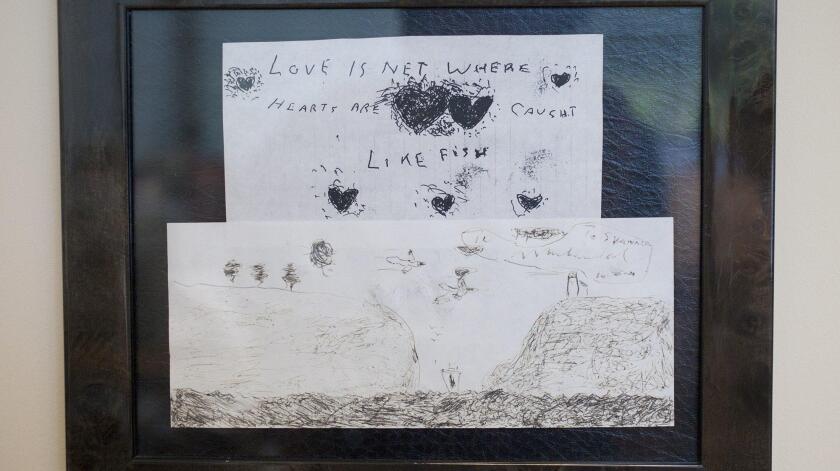 LOVE IS NET WHERE
HEARTS ARE CAUGHT
LIKE FISH
To